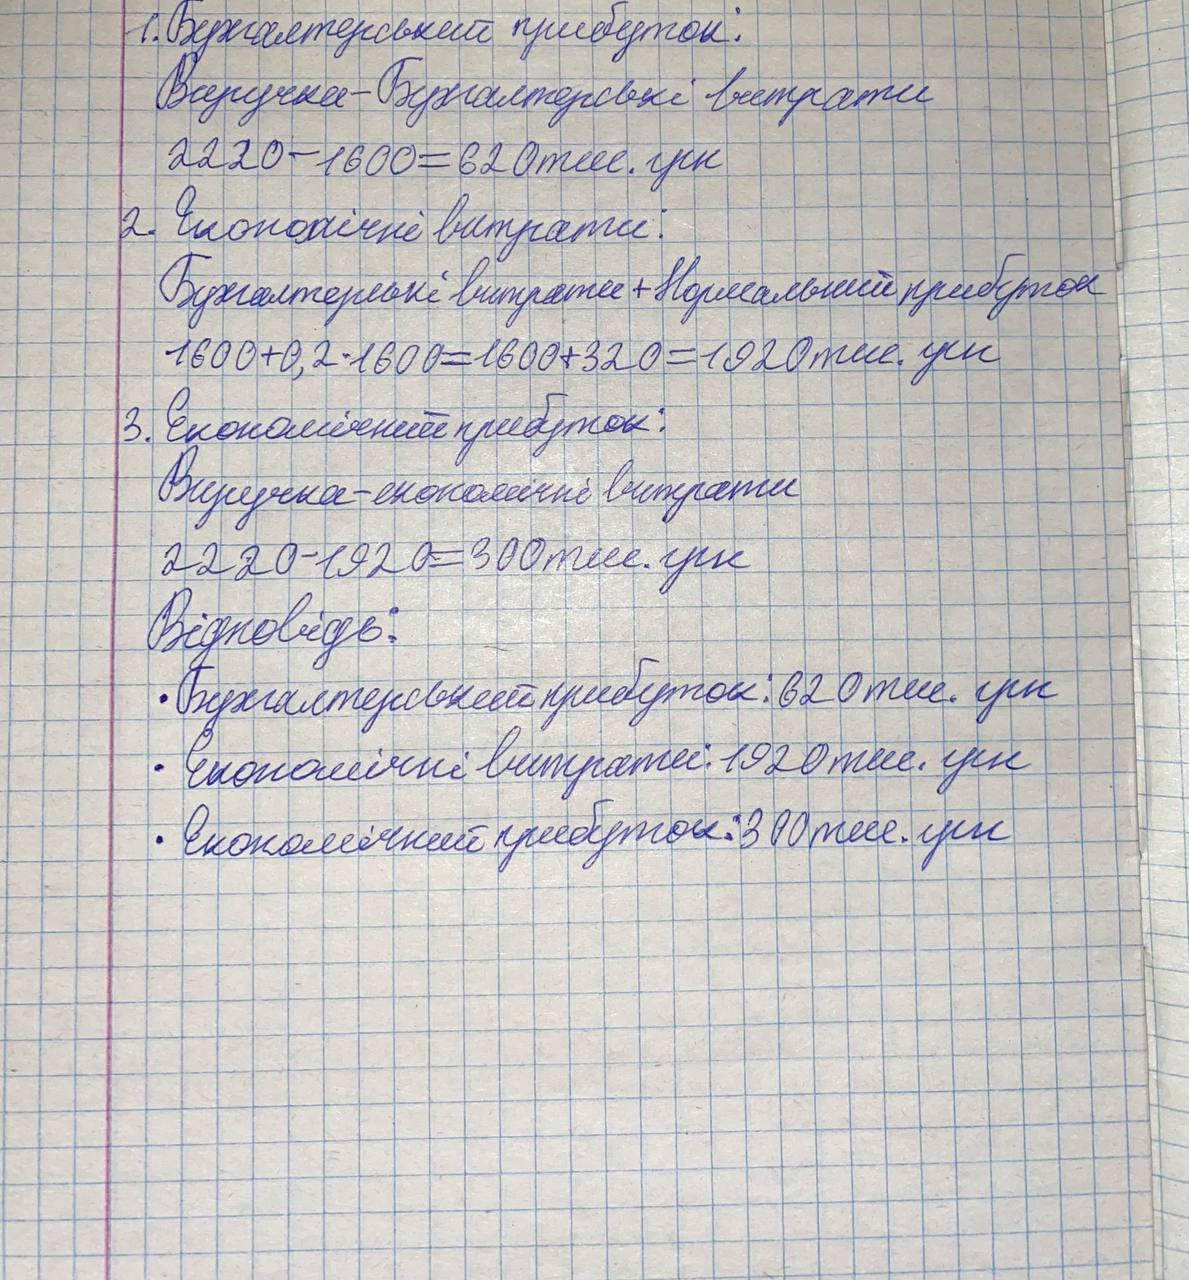 1. Бухгалтерський прибуток:
Виручка-Бухгалтерські витрати
2220-1600=620тис. грн
2. Економічні витрати:
Бухгалтерські витрати+Нормальний прибуток
1600+0,2·1600=1600+320=1920тис. грн
3. Економічний прибуток:
Виручка-економічні витрати
2220-1920=300тис. грн
Відповідь:
• Бухгалтерський прибуток: 620тис. грн
• Економічні витрати: 1920тис. грн
• Економічний прибуток: 300тис. грн